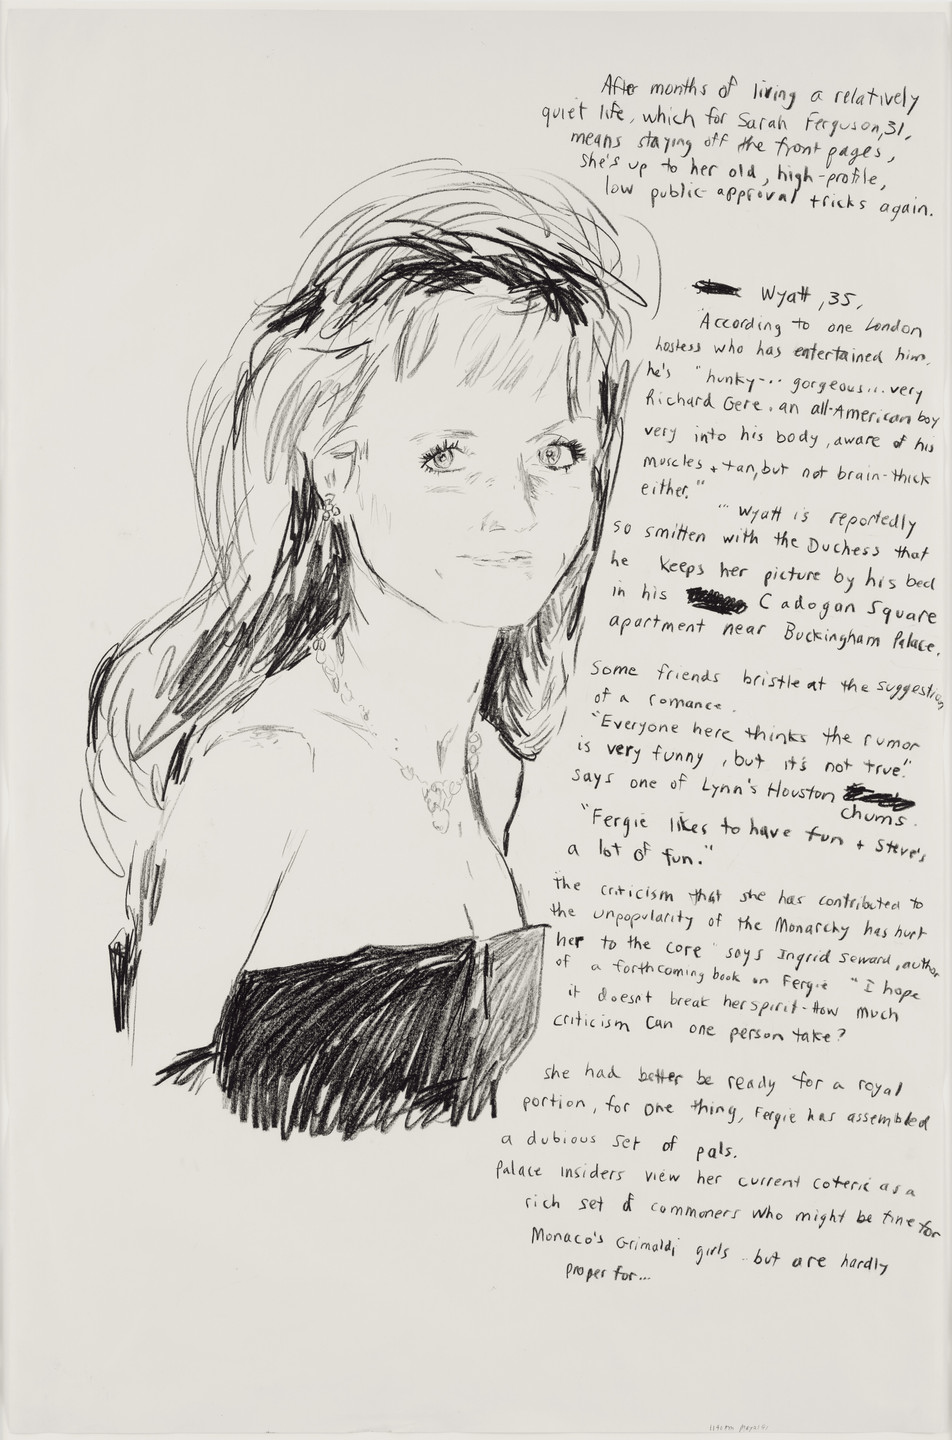 After months of living a relatively
quiet life, which for Sarah Ferguson, 31,
means staying off the front pages,
she's up to her old, high-profile,
low public approval tricks again.
Wyatt, 35,
"According to one London
hostess who has entertained him,
he's "hunky-.. gorgeous... very
Richard Gere, an all-American boy
very into his body, aware of his
muscles + tan, but not brain-thick
either."
"Wyatt is reportedly
so smitten with the Duchess that
he keeps her picture by his bed
in his Cadogan Square
apartment near Buckingham Palace.
Some friends bristle at the suggestion
of a romance.
"Everyone here thinks the rumor
is very funny, but it's not true"
says one of Lynn's Houston
chums.
"Fergie likes to have fun + Steve's
a lot of fun."
The criticism that she has contributed to
the unpopularity of the Monarchy has hurt
her to the core" says Ingrid Seward, author
of a forthcoming book on Fergie "I hope
it doesn't break her spirit-How much
criticism can one person take?
she had better be ready for a royal
portion, for one thing, Fergie has assembled
a dubious set of pals.
Palace insiders view her current coterie as a
rich set of commoners who might be fine for
Monaco's Grimaldi girls - but are hardly
proper for...